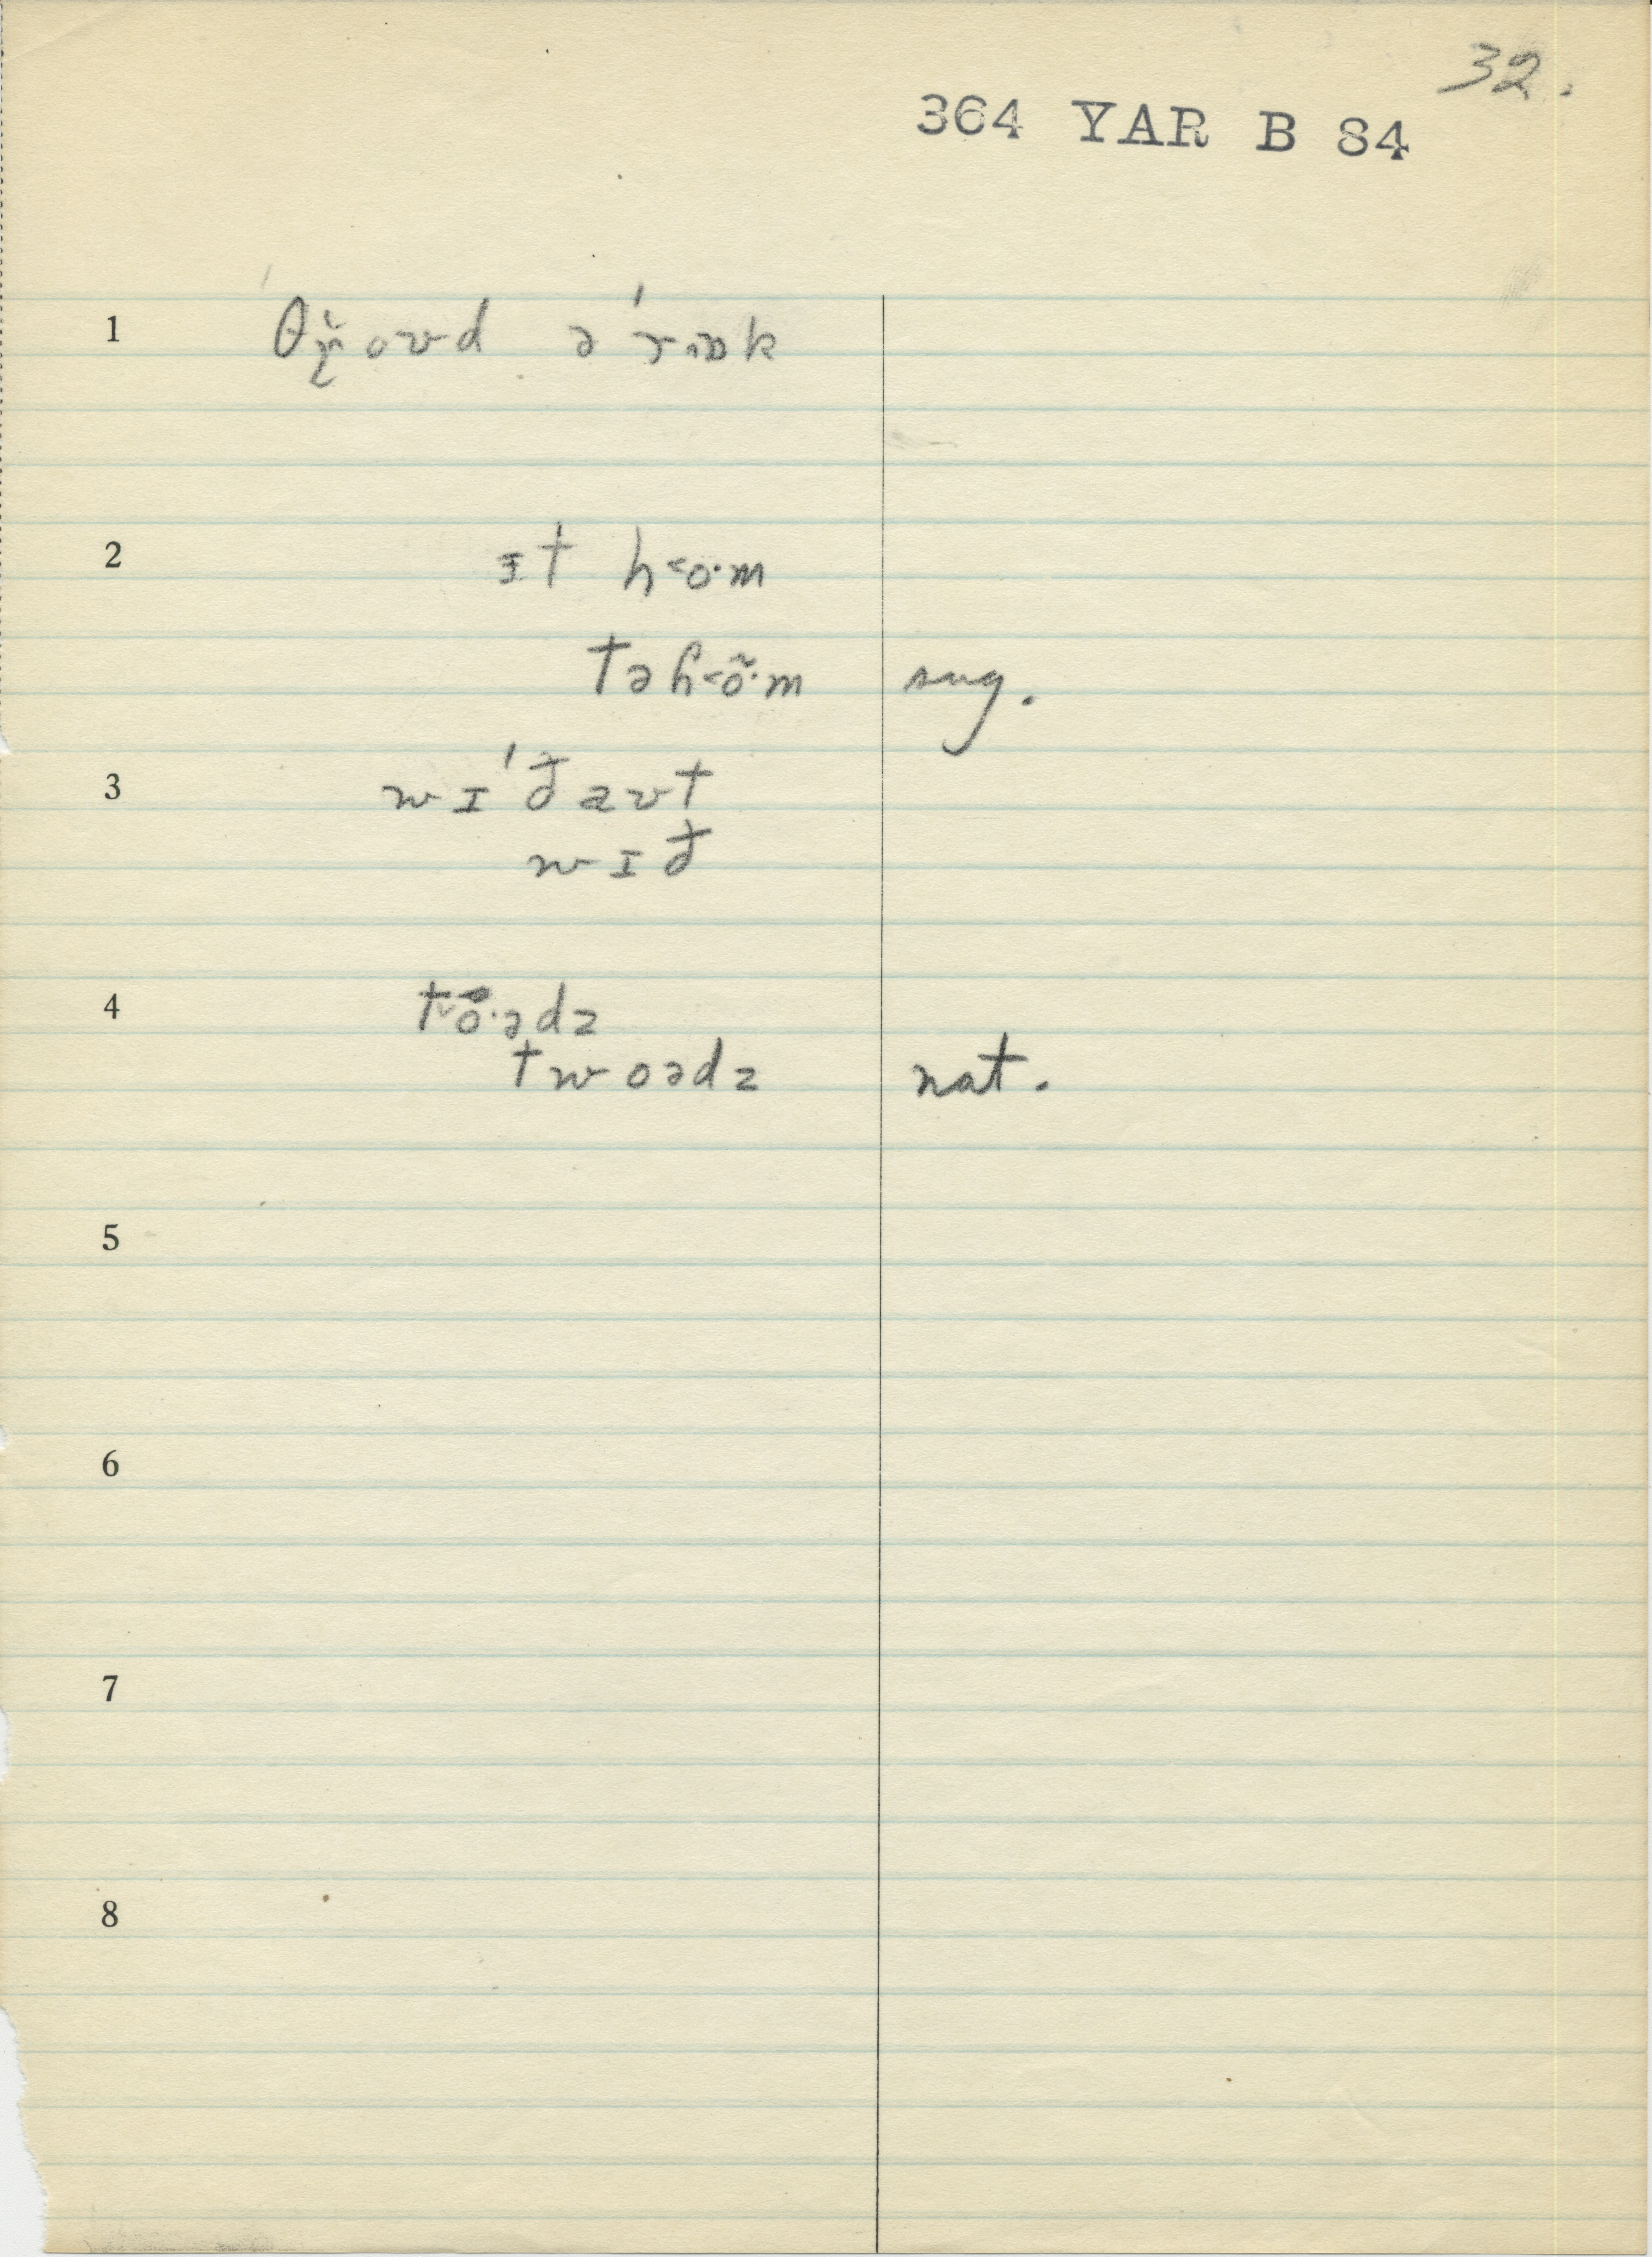 32.
364 YAR B 84
1 θr̯̆oʊd ə'rɒk
2 ɪt h<o·m
təɦ<õ·m sug.
3 wɪ'ðaʊt
wɪð
4 t>o·ədz
twoədz nat.
5
6
7
8